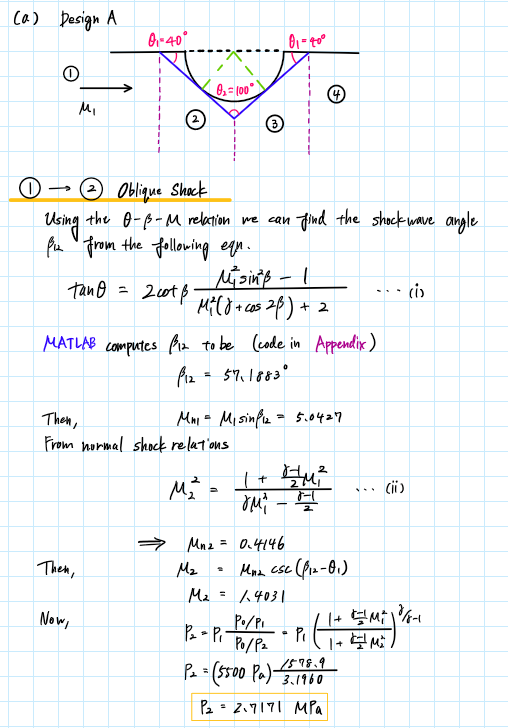 (a) Design A
θ₁=40° θ₁=40°
① θ₂=100° ④
M₁ ② ③
① → ② Oblique Shock
Using the θ-β-M relation we can find the shockwave angle
β₁₂ from the following eqn.
tanθ = 2cotβ (M₁²sin²β - 1)/(M₁²(γ+cos 2β) + 2) ... (i)
MATLAB computes β₁₂ to be (code in Appendix)
β₁₂ = 57.1883°
Then, Mn1 = M₁sinβ₁₂ = 5.0427
From normal shock relations
M₂² = (1 + (γ-1)/2 M₁²)/(γM₁² - (γ-1)/2) ... (ii)
⟹ Mn2 = 0.4146
Then, M₂ = Mn2 csc(β₁₂-θ₁)
M₂ = 1.4031
Now, P₂ = P₁ (P₀/P₁)/(P₀/P₂) = P₁ ((1 + (γ-1)/2 M₁²)/(1 + (γ-1)/2 M₂²))^(γ/γ-1)
P₂ = (5500 Pa) 1578.9/3.1960
P₂ = 2.7171 MPa